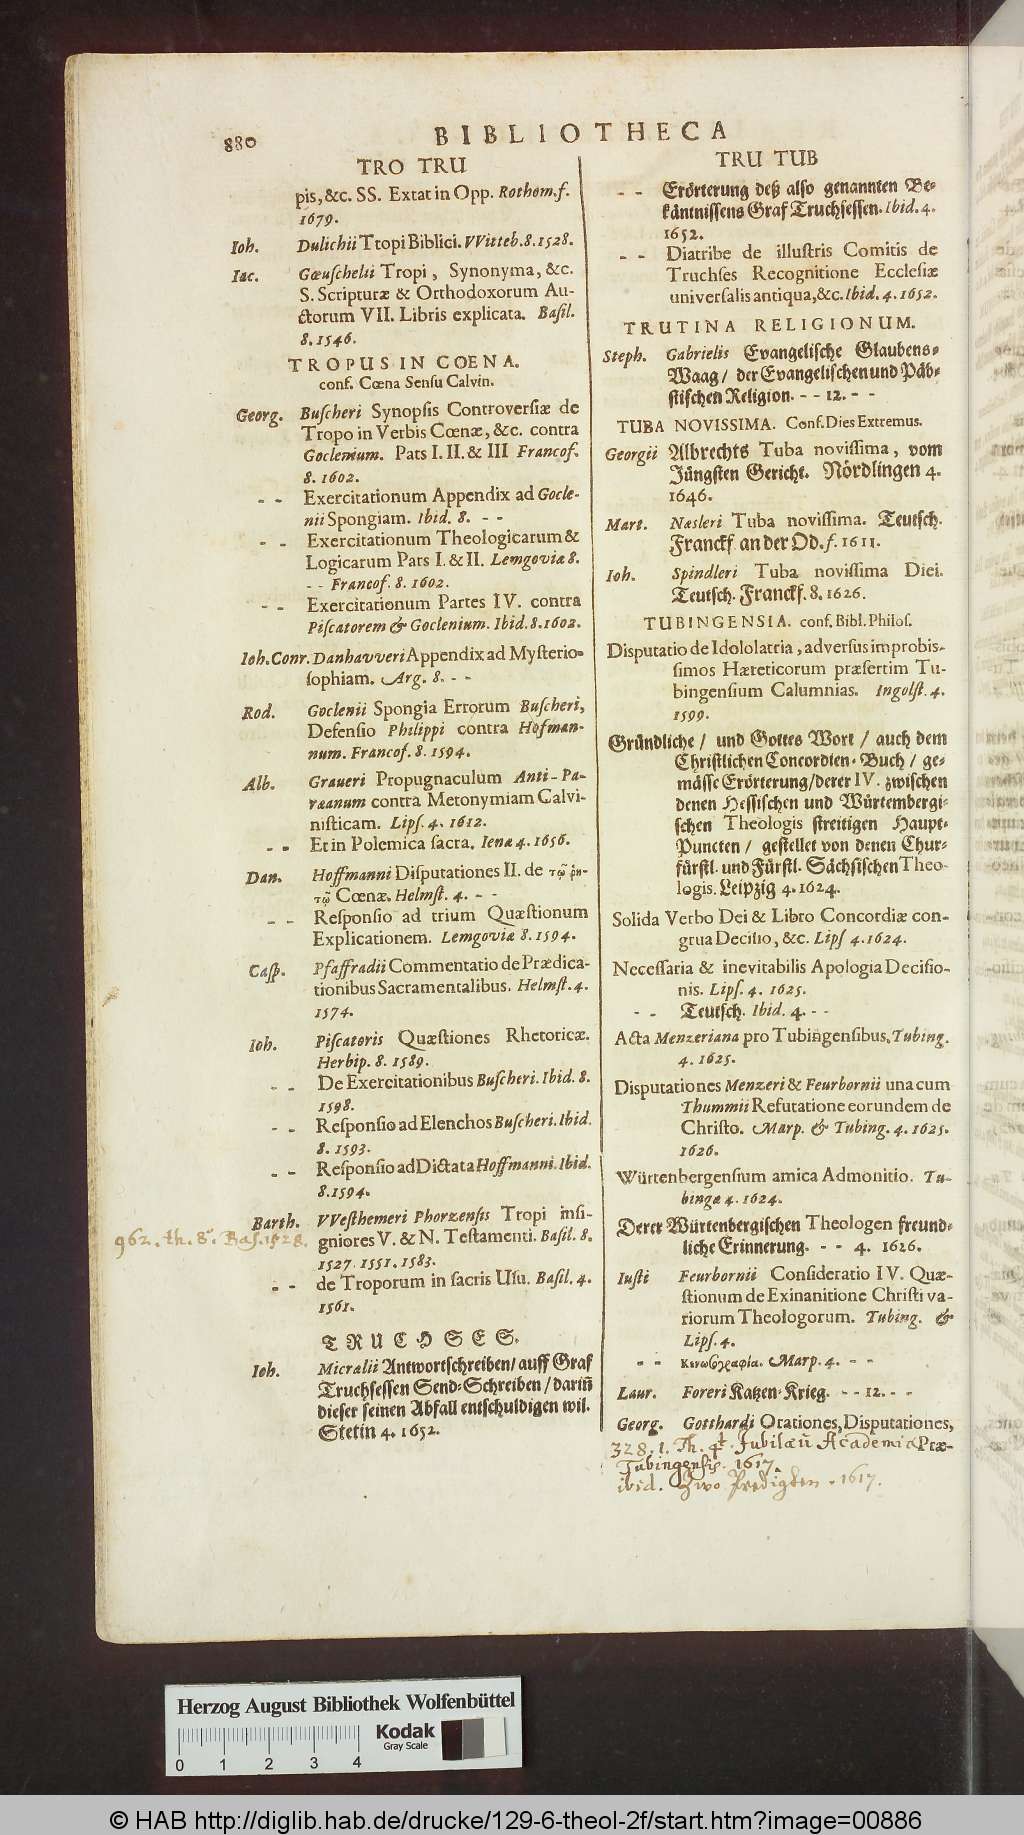 880
BIBLIOTHECA
TRO TRU
pis, &c. SS. Extat in Opp. Rothom. f.
1679.
Ioh. Dulichii Tropi Biblici. VVitteb. 8. 1528.
Iac. Gœuschelii Tropi, Synonyma, &c.
S. Scripturæ & Orthodoxorum Au-
ctorum VII. Libris explicata. Basil.
8. 1546.
TROPUS IN COENA.
conf. Cœna Sensu Calvin.
Georg. Buscheri Synopsis Controversiæ de
Tropo in Verbis Cœnæ, &c. contra
Goclenium. Pars I. II. & III Francof.
8. 1602.
- - Exercitationum Appendix ad Gocle-
nii Spongiam. Ibid. 8. - -
- - Exercitationum Theologicarum &
Logicarum Pars I. & II. Lemgoviæ 8.
- - Francof. 8. 1602.
- - Exercitationum Partes IV. contra
Piscatorem & Goclenium. Ibid. 8. 1602.
Ioh. Conr. Danhavveri Appendix ad Mysterio-
sophiam. Arg. 8. - -
Rod. Goclenii Spongia Errorum Buscheri,
Defensio Philippi contra Hofman-
num. Francof. 8. 1594.
Alb. Graueri Propugnaculum Anti-Pa-
ræanum contra Metonymiam Calvi-
nisticam. Lips. 4. 1612.
- - Et in Polemica sacra. Ienæ 4. 1656.
Dan. Hoffmanni Disputationes II. de τῶ ῥη-
τῶ Cœnæ. Helmst. 4. - -
- - Responsio ad trium Quæstionum
Explicationem. Lemgoviæ 8. 1594.
Casp. Pfaffradii Commentatio de Prædica-
tionibus Sacramentalibus. Helmst. 4.
1574.
Ioh. Piscatoris Quæstiones Rhetoricæ.
Herbip. 8. 1589.
- - De Exercitationibus Buscheri. Ibid. 8.
1598.
- - Responsio ad Elenchos Buscheri. Ibid.
8. 1593.
- - Responsio ad Dictata Hoffmanni. Ibid.
8. 1594.
Barth. VVesthemeri Phorzensis Tropi insi-
962. th. 8°. Bas. 1528. gniores V. & N. Testamenti. Basil. 8.
1527. 1551. 1583.
- - de Troporum in sacris Usu. Basil. 4.
1561.
TRUCHSES.
Ioh. Micralii Antwortschreiben/ auff Graf
Truchsessen Send-Schreiben/ dariñ
dieser seinen Abfall entschuldigen wil.
Stetin 4. 1652.
TRU TUB
- - Erörterung deß also genannten Be-
käntnissens Graf Truchsessen. Ibid. 4.
1652.
- - Diatribe de illustris Comitis de
Truchses Recognitione Ecclesiæ
universalis antiqua, &c. Ibid. 4. 1652.
TRUTINA RELIGIONUM.
Steph. Gabrielis Evangelische Glaubens-
Waag/ der Evangelischen und Päb-
stischen Religion. - - 12. - -
TUBA NOVISSIMA. Conf. Dies Extremus.
Georgii Albrechts Tuba novissima, vom
Jüngsten Gericht. Nördlingen 4.
1646.
Mart. Næsleri Tuba novissima. Teutsch.
Franckf. an der Od. f. 1611.
Ioh. Spindleri Tuba novissima Diei.
Teutsch. Franckf. 8. 1626.
TUBINGENSIA. conf. Bibl. Philos.
Disputatio de Idololatria, adversus improbis-
simos Hæreticorum præsertim Tu-
bingensium Calumnias. Ingolst. 4.
1599.
Gründliche/ und Gottes Wort/ auch dem
Christlichen Concordien-Buch/ ge-
mässe Erörterung/ derer IV. zwischen
denen Hessischen und Würtembergi-
schen Theologis streitigen Haupt-
Puncten/ gestellet von denen Chur-
fürstl. und Fürstl. Sächsischen Theo-
logis. Leipzig 4. 1624.
Solida Verbo Dei & Libro Concordiæ con-
grua Decisio, &c. Lips 4. 1624.
Necessaria & inevitabilis Apologia Decisio-
nis. Lips. 4. 1625.
- - Teutsch. Ibid. 4. - -
Acta Menzeriana pro Tubingensibus, Tubing.
4. 1625.
Disputationes Menzeri & Feurbornii una cum
Thummii Refutatione eorundem de
Christo. Marp. & Tubing. 4. 1625.
1626.
Würtenbergensium amica Admonitio. Tu-
bingæ 4. 1624.
Derer Würtenbergischen Theologen freund-
liche Erinnerung. - - 4. 1626.
Iusti Feurbornii Consideratio IV. Quæ-
stionum de Exinanitione Christi va-
riorum Theologorum. Tubing. &
Lips. 4.
- - Marp. 4. - -
Laur. Foreri Katzen-Krieg. - - 12. - -
Georg. Gotthardi Orationes, Disputationes,
Præ-
328. 1. Th. 4t. Jubilæū Academiæ
Tubingensis. 1617.
ibid. Zwo Predigten. 1617.
Herzog August Bibliothek Wolfenbüttel
Kodak
Gray Scale
0 1 2 3 4
© HAB http://diglib.hab.de/drucke/129-6-theol-2f/start.htm?image=00886